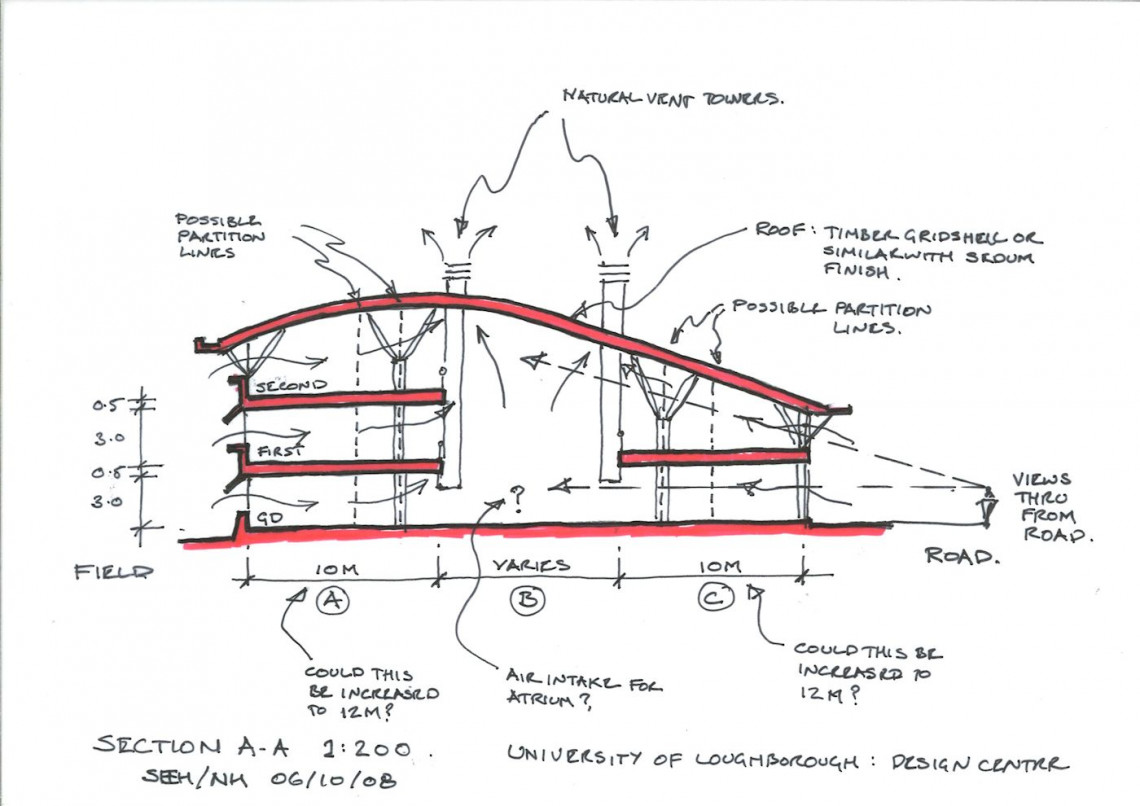 NATURAL VENT TOWERS.
POSSIBLE
PARTITION
LINES
ROOF: TIMBER GRIDSHELL OR
SIMILAR WITH SEDUM
FINISH.
POSSIBLE PARTITION
LINES.
SECOND
0.5
3.0
FIRST
0.5
3.0
GD
?
VIEWS
THRU
FROM
ROAD.
ROAD.
FIELD
10M
VARIES
10M
A
B
C
COULD THIS
BE INCREASED
TO 12M?
AIR INTAKE FOR
ATRIUM?
COULD THIS BE
INCREASED TO
12M?
SECTION A-A 1:200.
SEH/NH 06/10/08
UNIVERSITY OF LOUGHBOROUGH: DESIGN CENTRE